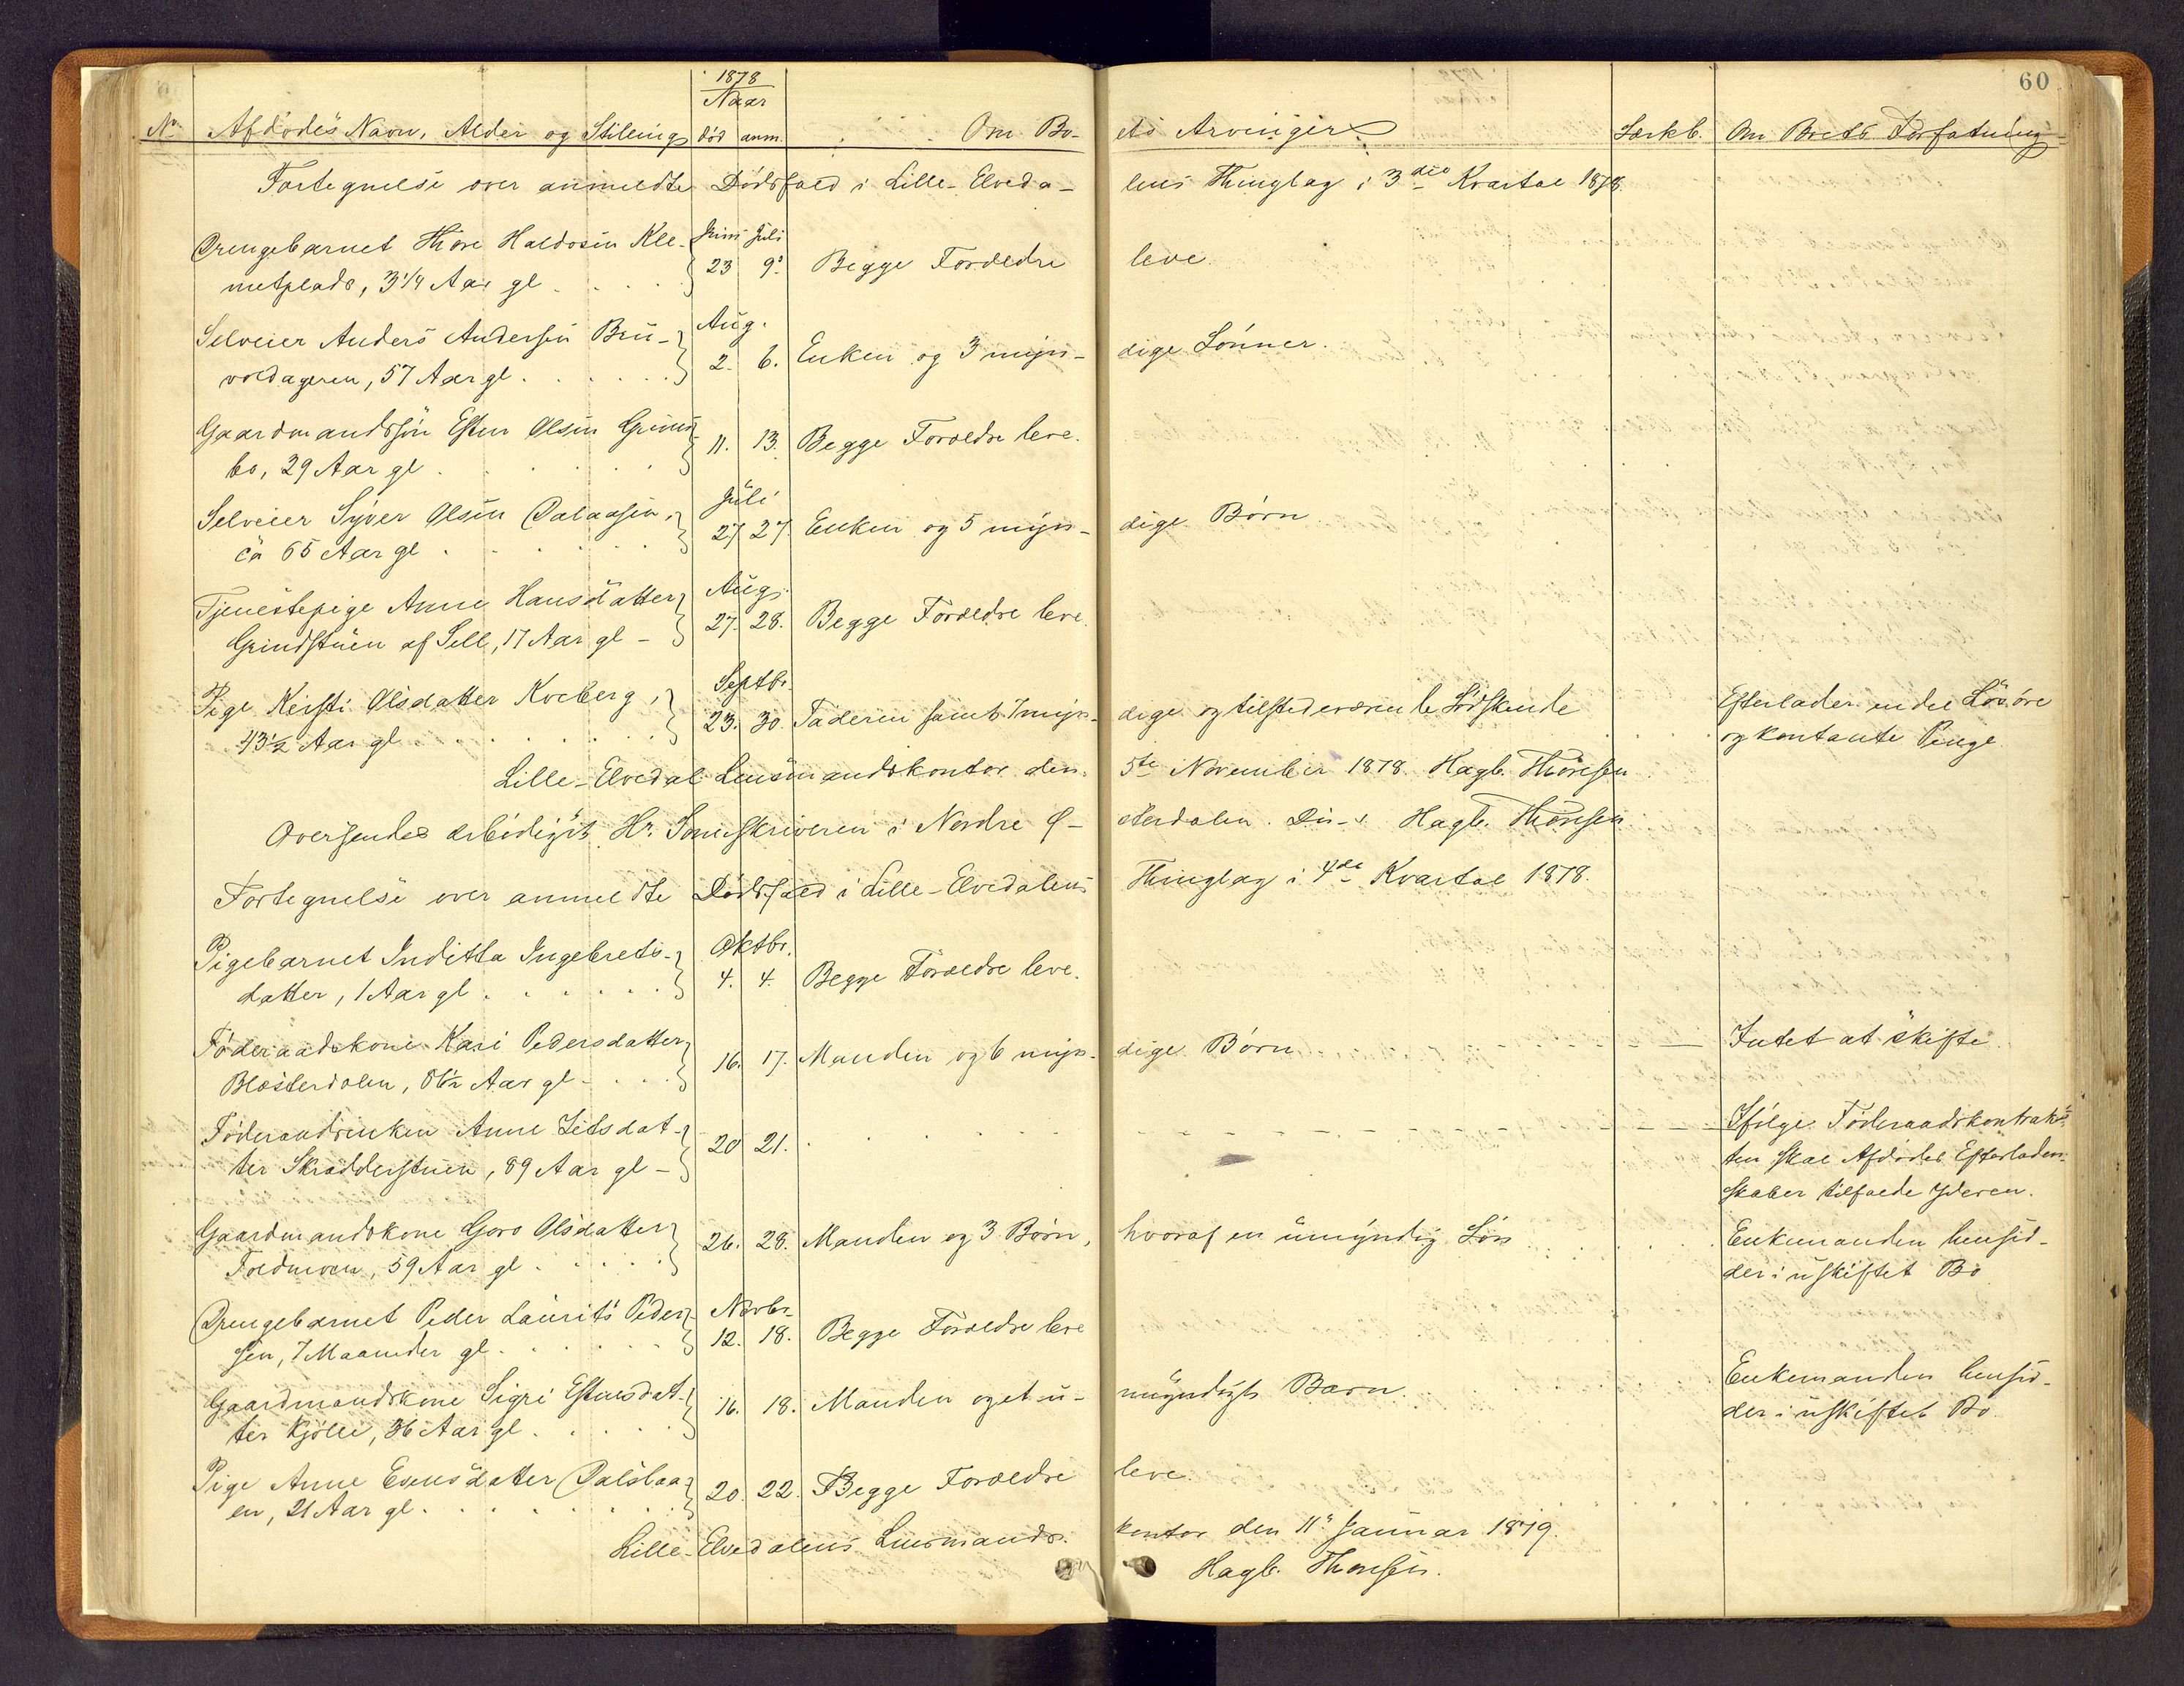 60
1878
Naar
No Afdødes Navn, Alder og Stilling død anm. Om Bo- ets Arvinger Særkb. Om Boets Forfatning
Fortegnelse over anmeldte Dødsfald i Lille-Elveda- lens Thinglag i 3die Kvartal 1878.
Drengebarnet Thore Haldosen Kle- Juni Juli
metplads, 3 1/4 Aar gl . . . 23 9. Begge Forældre leve.
Selveier Anders Andersen Bru- Aug.
voldageren, 57 Aar gl . . . . 2. 6. Enken og 3 myn- dige Sønner.
Gaardmandssøn Esten Olsen Grims-
bo, 29 Aar gl . . . . 11. 13. Begge Forældre leve.
Selveier Syver Olsen Dalaasen, Juli
ca 65 Aar gl . . . . 27 27. Enken og 5 myn- dige Børn
Tjenestepige Anne Hansdatter Aug.
Grindstuen af Sell, 17 Aar gl - 27. 28. Begge Forældre leve.
Pige Kersti Olsdatter Kveberg, Septbr.
43 1/2 Aar gl . . . . 23. 30. Faderen samt 7 myn- dige og tilstedeværende Sødskende Efterlader endel Løsøre
og kontante Penge.
Lille-Elvedal Lensmandskontor den 5te November 1878. Hagb. Thoresen
Oversendes ærbødigst Hr. Sorenskriveren i Nordre Ø- sterdalen. Hagb. Thoresen
Fortegnelse over anmeldte Dødsfald i Lille-Elvedalens Thinglag i 4de Kvartal 1878.
Pigebarnet Inditta Ingebrets- Oktbr.
datter, 1 Aar gl . . . . 4. 4. Begge Forældre leve.
Føderaadskone Kari Pedersdatter
Blæsterdalen, Aar gl - . . . 16. 17. Manden og 6 myn- dige Børn Intet at skifte.
Føderaadsenken Anne Zetsdat-
ter Skrædderstuen, 89 Aar gl - 20 21. Ifølge Føderaadskontrak-
ten skal Afdødes Efterladen-
skaber tilfalde Yderen.
Gaardmandskone Goro Olsdatter
Foldmoen, 59 Aar gl . . . . 26. 28. Manden og 3 Børn, hvoraf en umyndig Søn Enkemanden hensid-
der i uskiftet Bo
Drengebarnet Peder Laurits Peder- Novbr.
sen, 7 Maaneder gl . . . . 12. 18. Begge Forældre leve
Gaardmandskone Sigri Estensdat-
ter Kjølle, 36 Aar gl . . . . 16. 18. Manden og et u- myndigt Barn. Enkemanden hensid-
der i uskiftet Bo.
Pige Anne Esensdatter Dalsløa-
en, 21 Aar gl . . . . 20. 22. Begge Forældre leve.
Lille-Elvedalens Lensmands- kontor den 11. Januar 1879.
Hagb. Thoresen.